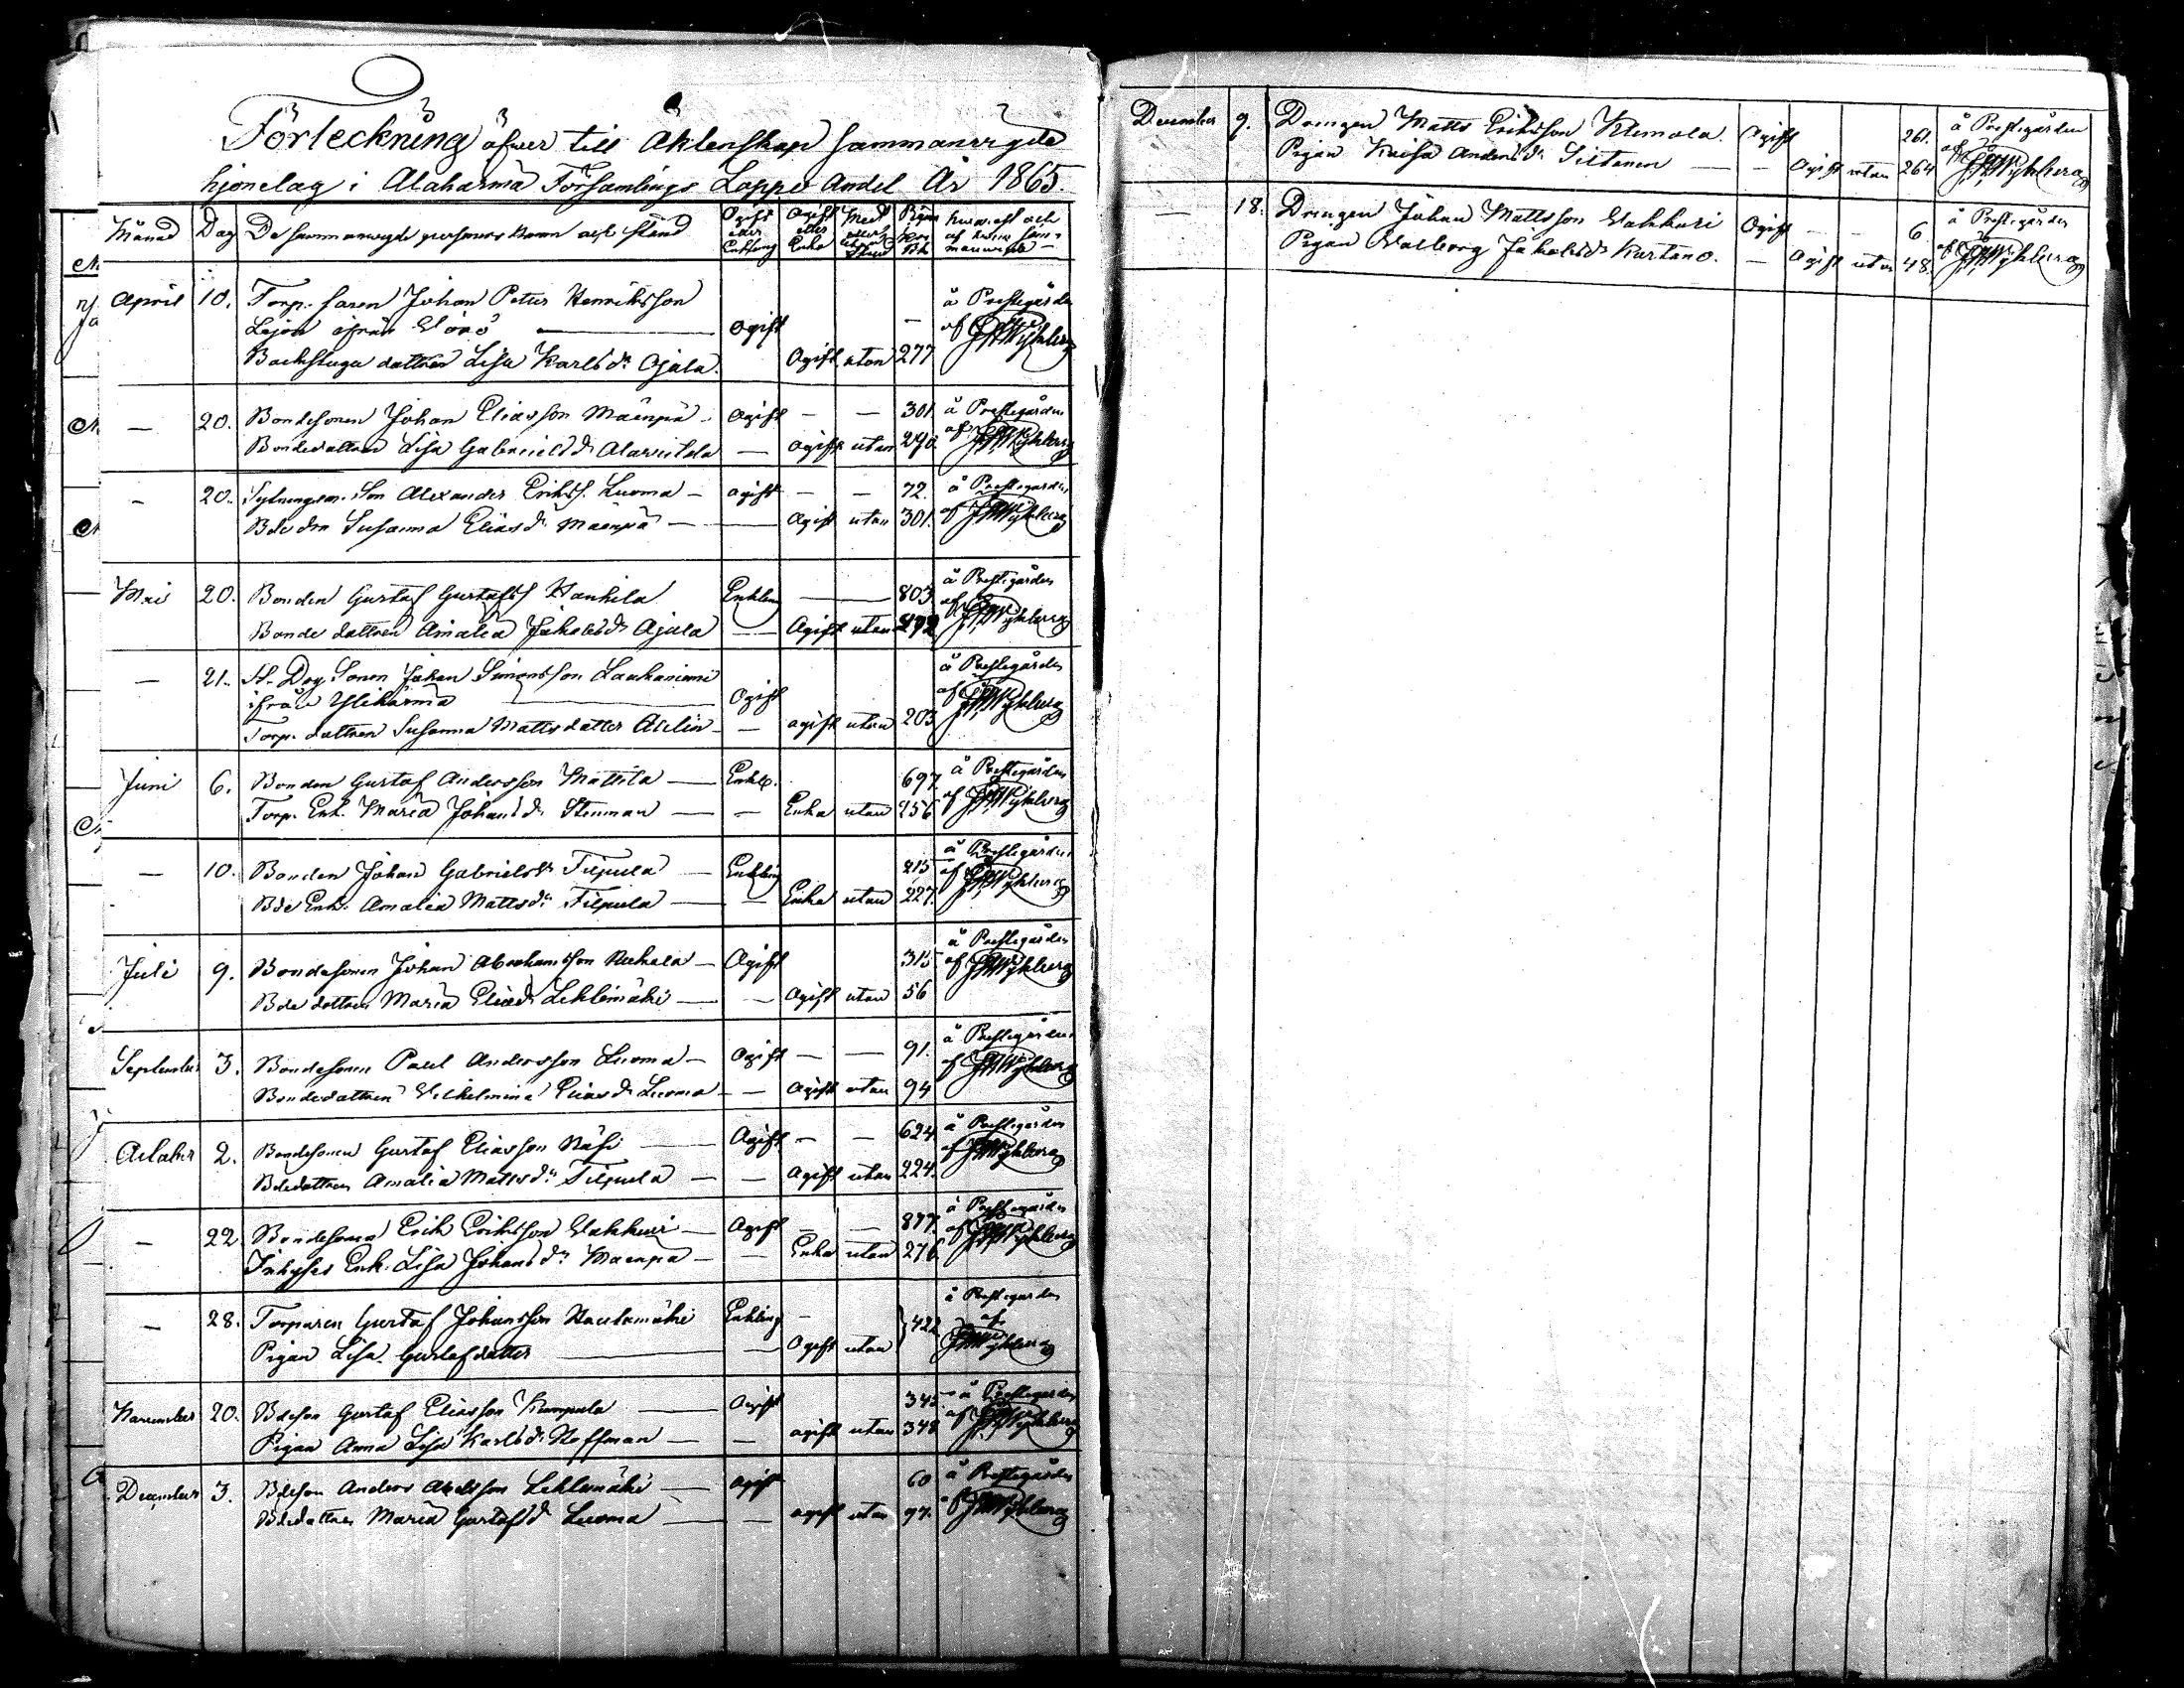 Förteckning öfver till Äktenskap sammanvigde
hjonelag i Alahärmä Församlings Lappo Andel År 1865.
Månad Dag De sammanvigde personers Namn och stånd Ogift eller Enkling Ogift eller Enka Med eller utan Pagina Kom. Bk. hvarest och af hvem sammanvigde
April 10. Torp. sonen Johan Petter Henriksson
ifrån Ogift — å Prestegården
Backstugu dottren Lisa Karlsdr Ojala. Ogift utan 277 af Wykberg
— 20. Bondesonen Johan Eliasson Mäenpä Ogift — — 301 å Prestegården
Bondedottren Lisa Gabrielsdr — Ogift utan 290 af Wykberg
— 20. Son Alexander Eriks. Luoma — ogift — — 72. å Prestegården
Bde dn Susanna Eliasdr Mäenpä — Ogift utan 301. af Wykberg
Mai 20. Bonden Gustaf Gustafs. Hankila Enkling — 803 å Prestgården
Bonde dottren Amalia Jakobsdr Ojala — Ogift utan af Wykberg
— 21. Sonen Johan Simonsson Lauhaniemi å Prestegården
ifrån Ylihärmä — Ogift af Wykberg
Torp. dottren Susanna Mattsdotter — ogift utan 203
Juni 6. Bonden Gustaf Andersson Mattila — Enkl. 697. å Prestegården
Torp. Enk. Maria Johansdr Stenman — — Enka utan 256 af Wykberg
— 10. Bonden Johan Gabrielss. Filpula — Enkling 215 å Prestegården
Bde Enk. Amalia Mattsdr Filpula — — Enka utan 227. af Wykberg
Juli 9. Bondesonen Johan Abrahamsson — Ogift 315 å Prestegården
Bde dottren Maria Eliasdr Lehtimäki — — Ogift utan 56 af Wykberg
September 3. Bondesonen Paul Andersson Luoma — Ogift — — 91. å Prestegården
Bondedottren Wilhelmina Eliasdr Luoma — — Ogift utan 94 af Wykberg
October 2. Bondesonen Gustaf Eliasson Näsi — Ogift — — 624 å Prestegården
Bdedottren Amalia Mattsdr Filpula — — Ogift utan 224. af Wykberg
— 22. Bondesonen Erik Eriksson Wakkuri — Ogift — — 877. å Prestegården
Inhyses Enk. Lisa Johansdr Maenpa — — Enka utan 276 af Wykberg
— 28. Torparen Gustaf Johansson Hautamäki Enkling — } 422 å Prestegården
Pigan Lisa Gustafsdotter — — Ogift utan af Wykberg
November 20. Bdeson Gustaf Eliasson Kumpula — Ogift 345 å Prestegården
Pigan Anna Lisa Karlsdr Hoffman — — ogift utan 348 af Wykberg
December 3. Bdeson Anders Abelsson Lehtimäki — ogift 60 å Prestegården
Bdedottren Maria Gustafsdr Luoma — — ogift utan 97. af Wykberg
December 9. Drengen Matts Eriksson Klemola. Ogift 261. å Prestegården
Pigan Kaisa Andersdr Siltanen — — Ogift utan 264 af Wykberg
— 18. Drengen Johan Mattsson Wakkuri Ogift — — 6. å Prestegården
Pigan Walborg Jakobsdr Kurtano. — Ogift utan 48. af Wykberg